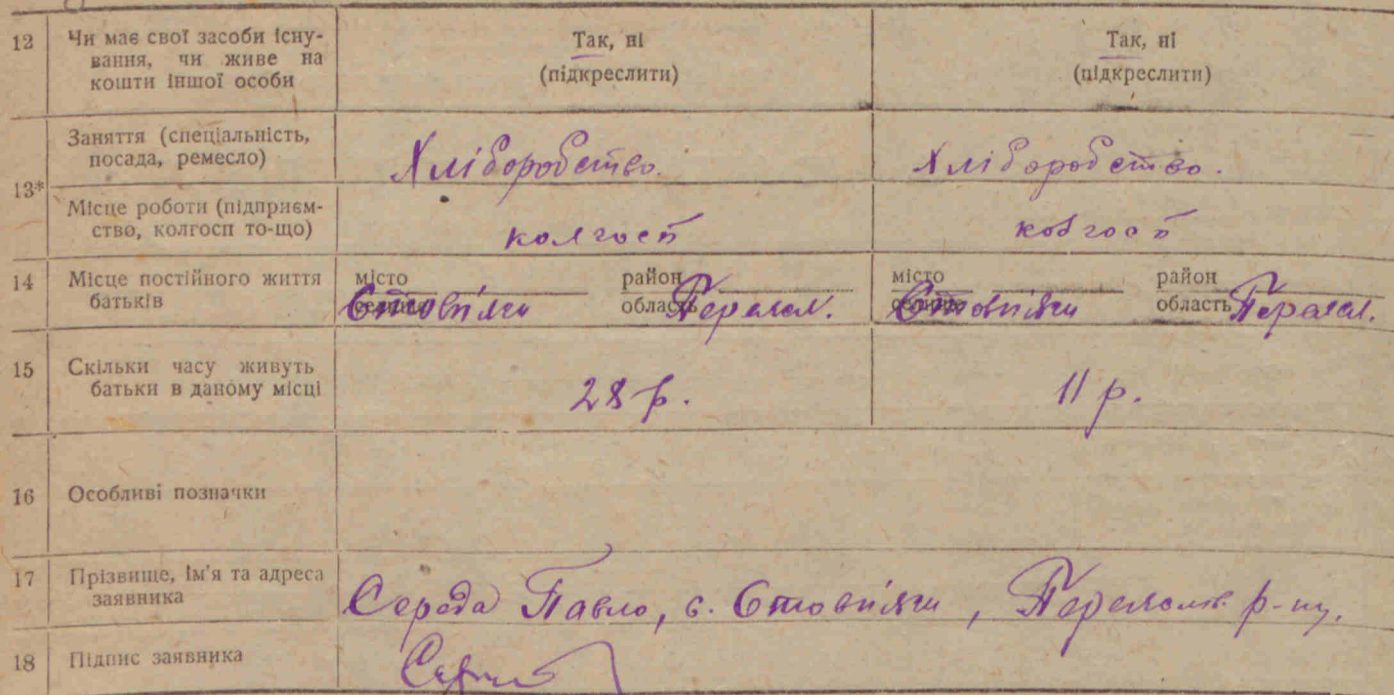 12 Чи має свої засоби існу-
вання, чи живе на
кошти іншої особи
Так, ні
(підкреслити)
Так, ні
(підкреслити)
13*
Заняття (спеціальність,
посада, ремесло)
Хліборобство.
Хліборобство.
Місце роботи (підприєм-
ство, колгосп то-що)
колгосп
колгосп
14 Місце постійного життя
батьків
місто
селище Стовп'яги
район
область Переясл.
місто
селище Стовп'яги
район
область Переясл.
15 Скільки часу живуть
батьки в даному місці
28 р.
11 р.
16 Особливі позначки
17 Прізвище, ім'я та адреса
заявника
Середа Павло, с. Стовп'яги, Переяслів. р-ну.
18 Підпис заявника